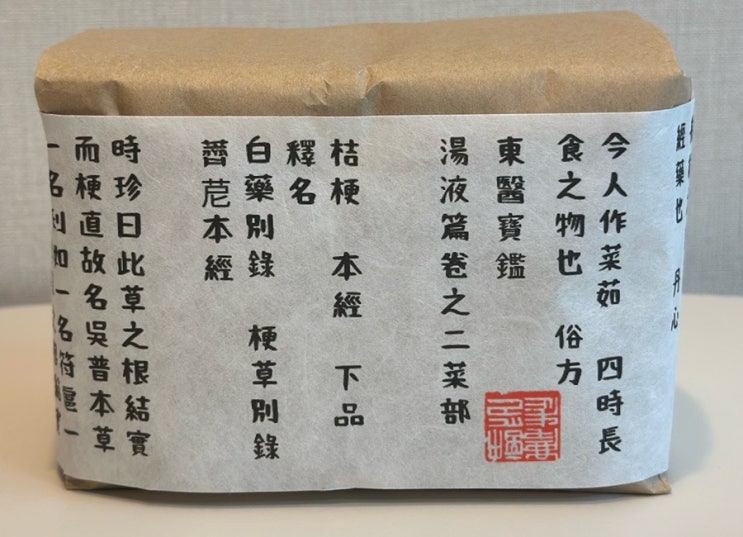 經藥也 丹心
今人作菜茹 四時長
食之物也 俗方
東醫寶鑑
湯液篇卷之二菜部
桔梗 本經 下品
釋名
白藥別錄 梗草別錄
薺苨本經
時珍曰此草之根結實
而梗直故名吳普本草
一名利如一名符扈一